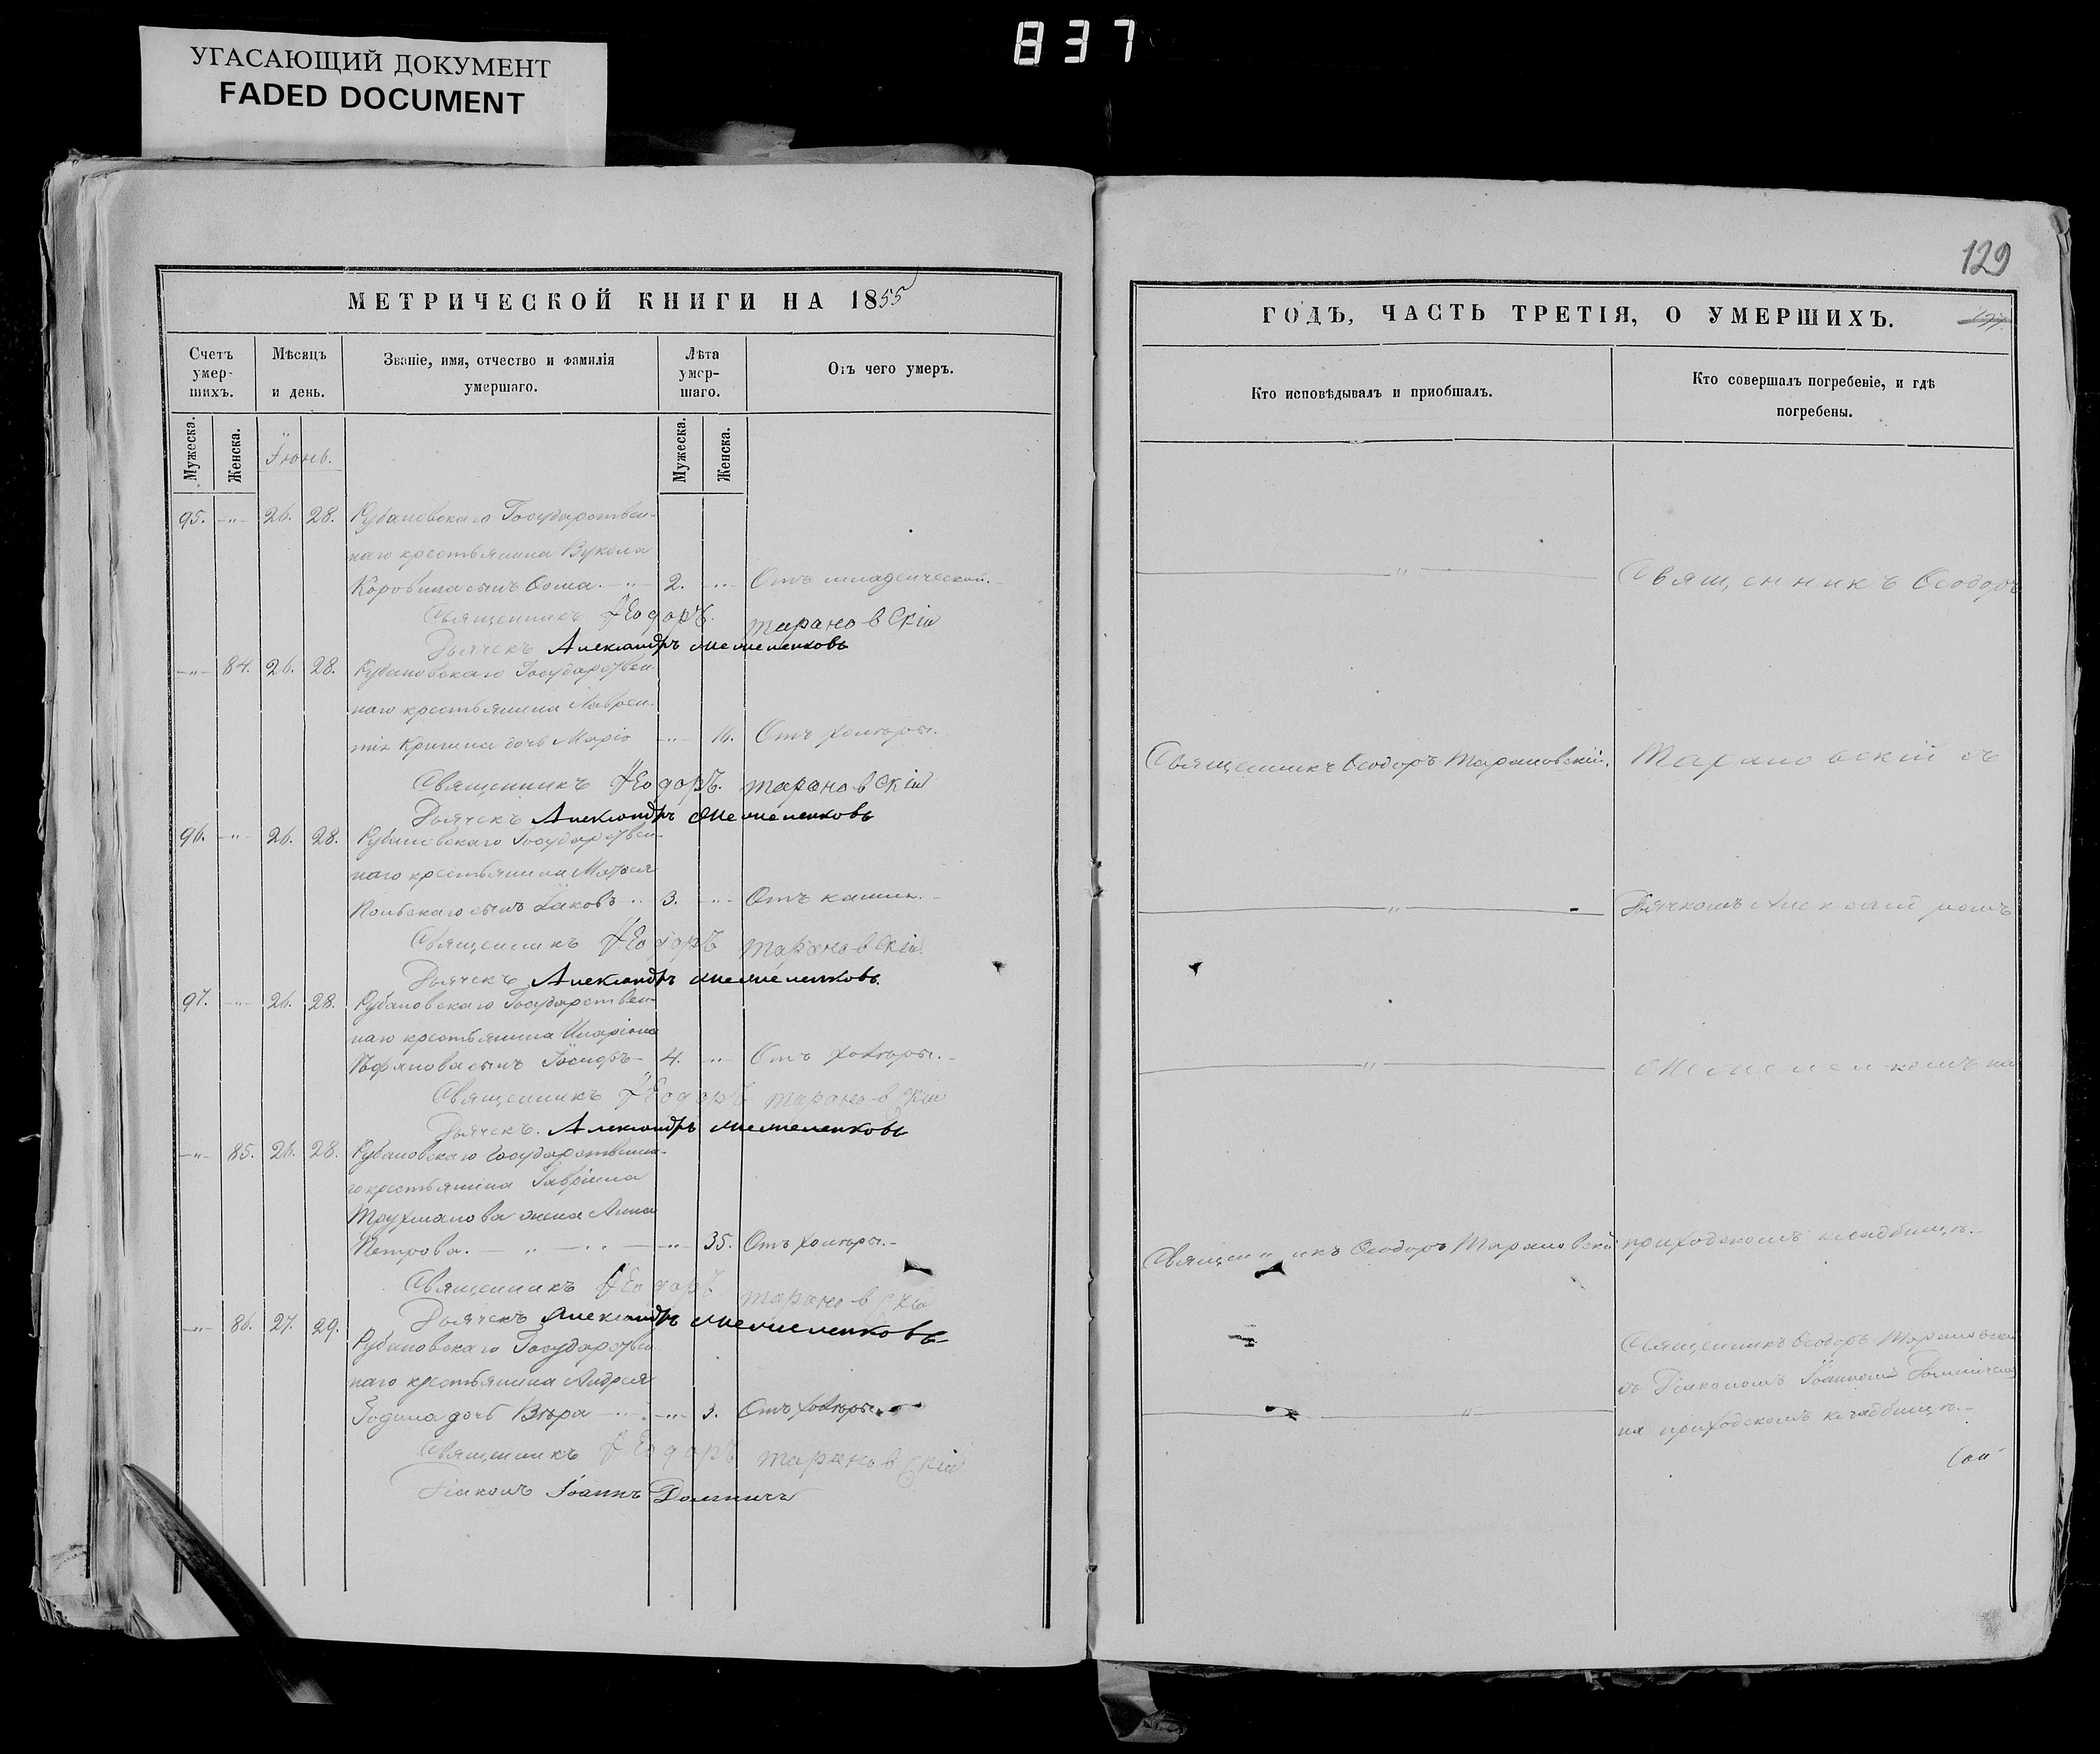 837
УГАСАЮЩИЙ ДОКУМЕНТ
FADED DOCUMENT
МЕТРИЧЕСКОЙ КНИГИ НА 1855
Счетъ умер-шихъ.
Мѣсяцъ и день.
Званіе, имя, отчество и фамилія умершаго.
Лѣта умер-шаго.
Отъ чего умеръ.
Мужеска.
Женска.
Іюнь.
Мужеска.
Женска.
95. -"- 26. 28. Рубановскаго Государствен-
наго крестьянина Вукола
Коровина сынъ Ѳома. -"- 2. -"- Отъ младенческой.-
Священникъ Ѳеодоръ Тарановскій
Дьячекъ Александръ
-"- 84. 26. 28. Рубановскаго Государствен-
наго крестьянина Лаврен-
тія дочь Марія -"- 11. Отъ холеры.
Священникъ Ѳеодоръ Тарановскій
Дьячекъ Александръ
96. -"- 26. 28. Рубановскаго Государствен-
наго крестьянина Матѳея
сынъ Іаковъ -"- 3. -"- Отъ кашля.-
Священникъ Ѳеодоръ Тарановскій
Дьячекъ Александръ
97. -"- 26. 28. Рубановскаго Государствен-
наго крестьянина Иларіона
сынъ Іосифъ- 4. -"- Отъ холеры.-
Священникъ Ѳеодоръ Тарановскій
Дьячекъ. Александръ
-"- 85. 26. 28. Рубановскаго Государственна-
го крестьянина Гавріила
Трухманова жена Анна
Петрова. -"- 35. Отъ холеры.-
Священникъ Ѳеодоръ Тарановскій
Дьячекъ Александръ
-"- 86. 27. 29. Рубановскаго Государствен-
наго крестьянина Андрея
Година дочь Вѣра -"- 3. Отъ холеры.
Священникъ Ѳеодоръ Тарановскій
Діаконъ Іоаннъ
129
ГОДЪ, ЧАСТЬ ТРЕТІЯ, О УМЕРШИХЪ.
Кто исповѣдывалъ и пріобщалъ.
Кто совершалъ погребеніе, и гдѣ погребены.
Священникъ Ѳеодоръ
Священникъ Ѳеодоръ Тарановскій. Тарановскій съ
Дьячкомъ Александромъ
на
Священникъ Ѳеодоръ Тарановскій приходскомъ кладбищѣ.-
Священникъ Ѳеодоръ Тарановскій
съ Діакономъ Іоанномъ
на приходскомъ кладбищѣ.-